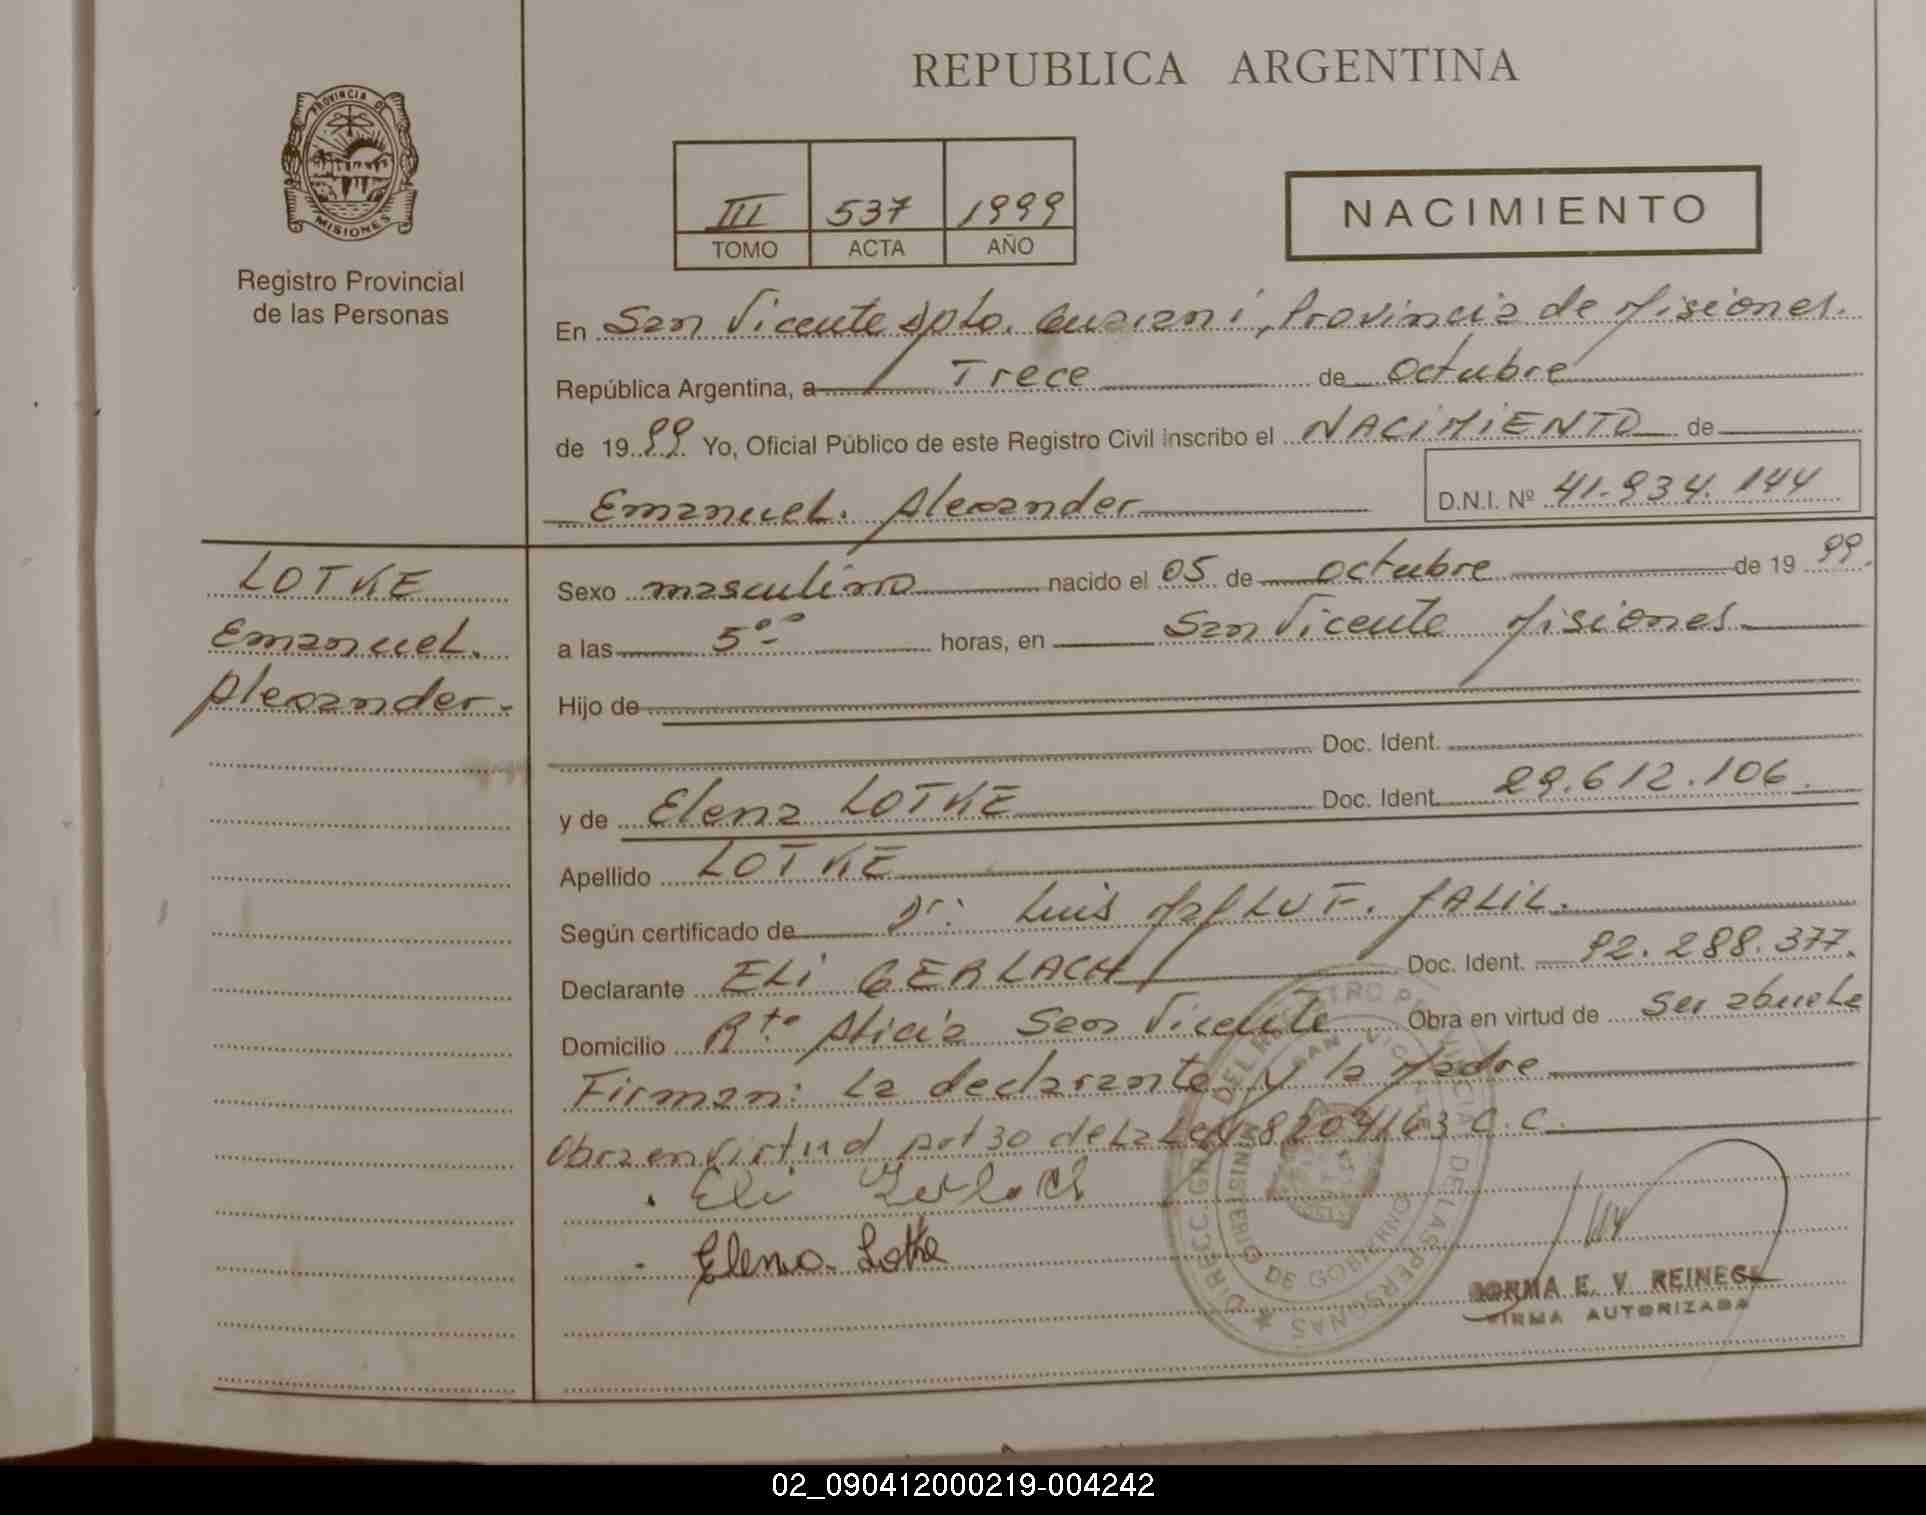 REPUBLICA ARGENTINA
PROVINCIA DE
MISIONES
Registro Provincial
de las Personas
III 537 1999
TOMO ACTA AÑO
NACIMIENTO
En San Vicente Dpto. Guarani, Provincia de Misiones.
República Argentina, a Trece de Octubre
de 1999. Yo, Oficial Público de este Registro Civil inscribo el NACIMIENTO de
Emanuel. Alexander D.N.I. Nº 41.934.144
LOTKE
Emanuel.
Alexander.
Sexo masculino nacido el 05 de octubre de 19 99.
a las 5°° horas, en San Vicente Misiones
Hijo de
Doc. Ident.
y de Elena LOTKE Doc. Ident. 29.612.106.
Apellido LOTKE
Según certificado de Dr. Luis JALIL.
Declarante ELI GERLACH Doc. Ident. 92.288.377.
Domicilio Rto Alicia San Vicente Obra en virtud de Ser abuela
Firman: La declarante y la Madre
Obra en virtud art 30 de La Ley 18204/63 C.C.
Eli Gerlach
Elena Lotke
NORMA E. V. REINEGL
FIRMA AUTORIZADA
DIRECC. GRAL. DEL REGISTRO PROVINCIAL DE LAS PERSONAS
SAN VICENTE
MINISTERIO DE GOBIERNO
02_090412000219-004242